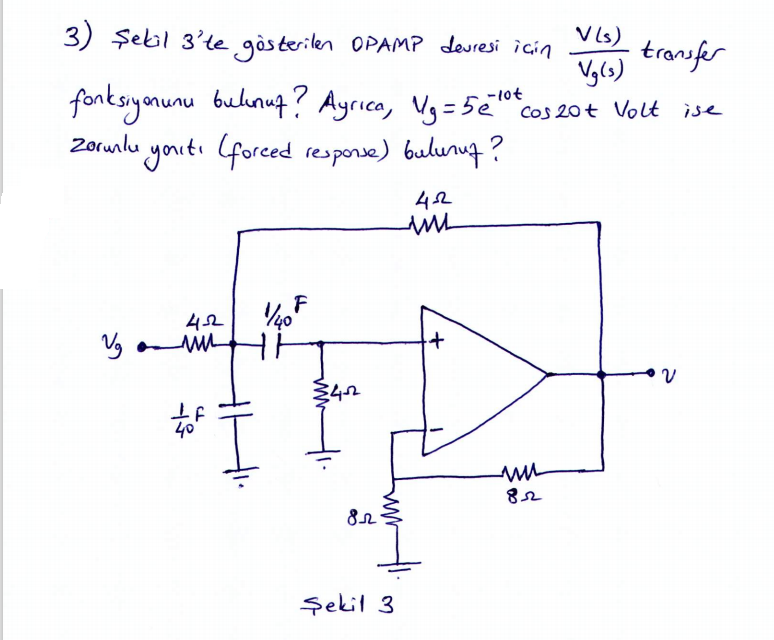 3) Şekil 3'te gösterilen OPAMP devresi için V(s)/Vg(s) transfer
fonksiyonunu bulunuz? Ayrıca, Vg = 5e^-10t cos20t Volt ise
zorunlu yanıtı (forced response) bulunuz?
4Ω
4Ω
1/40 F
Vg
+
v
4Ω
1/40 F
-
8Ω
8Ω
Şekil 3